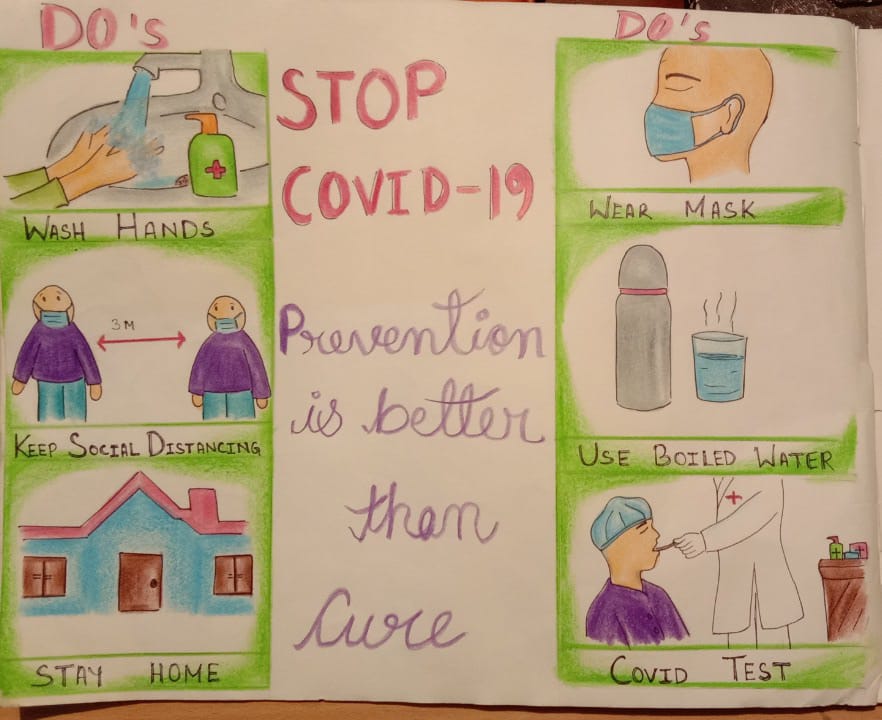 DO's
WASH HANDS
3M
KEEP SOCIAL DISTANCING
STAY HOME
STOP
COVID-19
Prevention
is better
than
Cure
DO's
WEAR MASK
USE BOILED WATER
COVID TEST